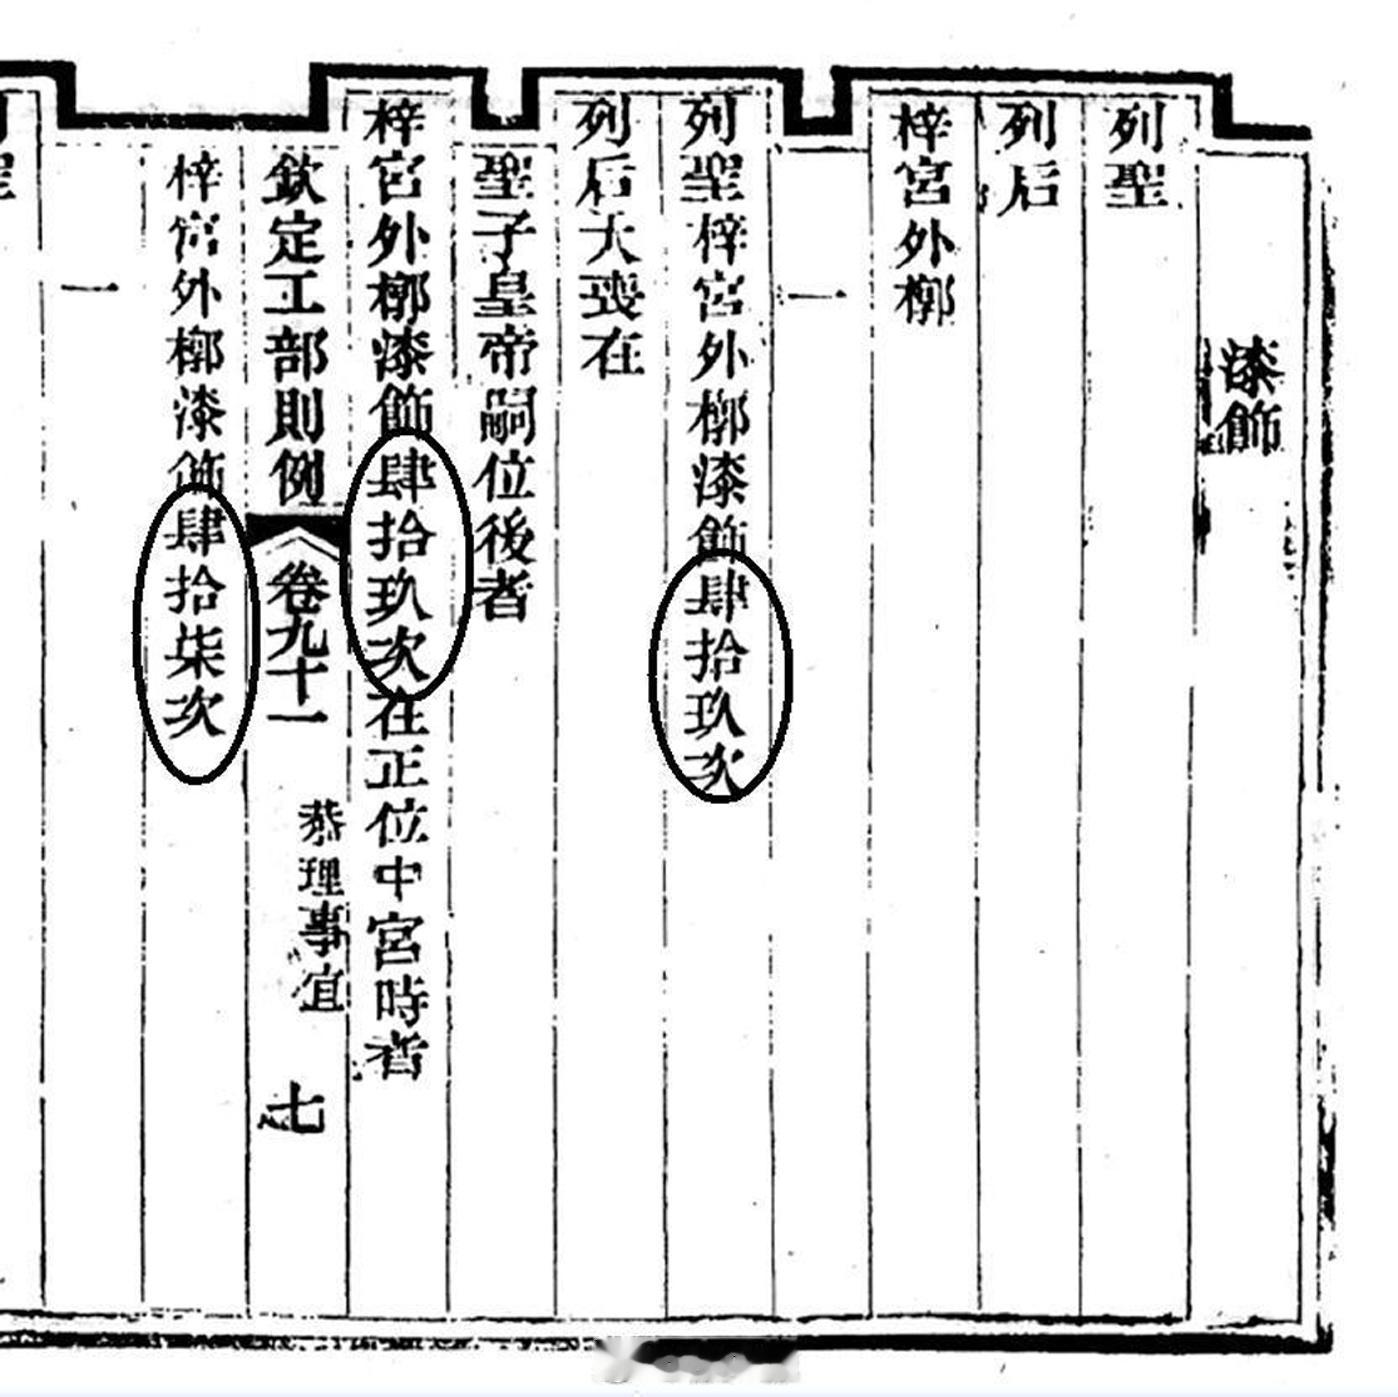 漆飾
列聖
列后
梓宮外槨
一
列聖梓宮外槨漆飾肆拾玖次
列后大喪在
聖子皇帝嗣位後者
梓宮外槨漆飾肆拾玖次在正位中宮時者
欽定工部則例
卷九十一
恭理事宜
七
梓宮外槨漆飾肆拾柒次
一